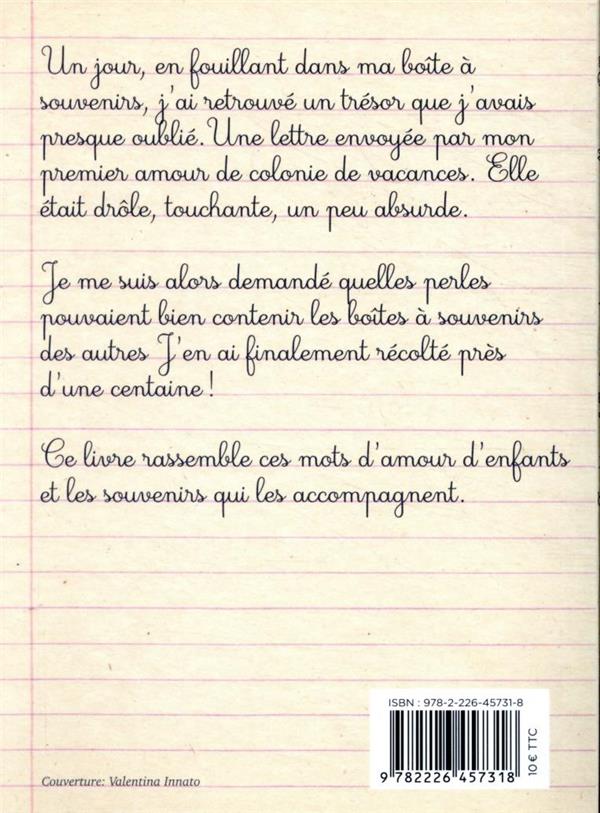 Un jour, en fouillant dans ma boîte à
souvenirs, j'ai retrouvé un trésor que j'avais
presque oublié. Une lettre envoyée par mon
premier amour de colonie de vacances. Elle
était drôle, touchante, un peu absurde.
Je me suis alors demandé quelles perles
pouvaient bien contenir les boîtes à souvenirs
des autres J'en ai finalement récolté près
d'une centaine !
Ce livre rassemble ces mots d'amour d'enfants
et les souvenirs qui les accompagnent.
ISBN : 978-2-226-45731-8
9 782226 457318
10 € TTC
Couverture: Valentina Innato